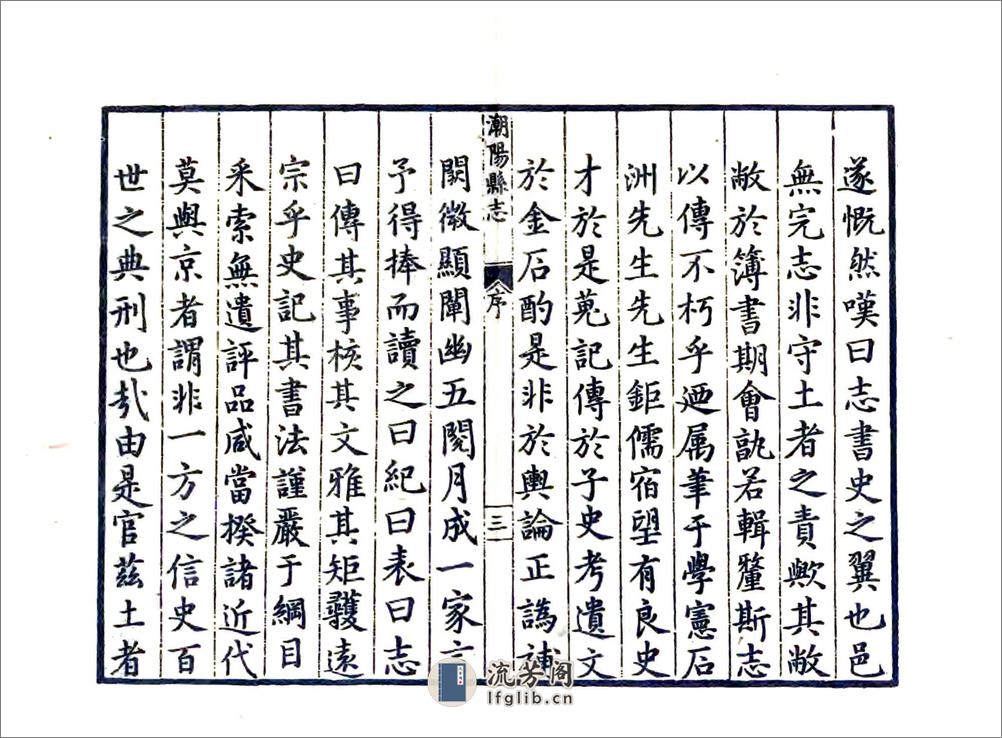 遂慨然嘆曰志書史之翼也邑
無完志非守土者之責歟其敝
敝於簿書期會孰若輯釐斯志
以傳不朽乎迺属筆于學憲石
洲先生先生鉅儒宿望有良史
才於是蒐記傳於子史考遺文
於金石酌是非於輿論正譌補
潮陽縣志 序 三
闕微顯闡幽五閱月成一家言
予得捧而讀之曰紀曰表曰志
曰傳其事核其文雅其矩矱遠
宗乎史記其書法謹嚴于綱目
采索無遺評品咸當揆諸近代
莫與京者謂非一方之信史百
世之典刑也㢤由是官茲土者
流芳阁
lfglib.cn